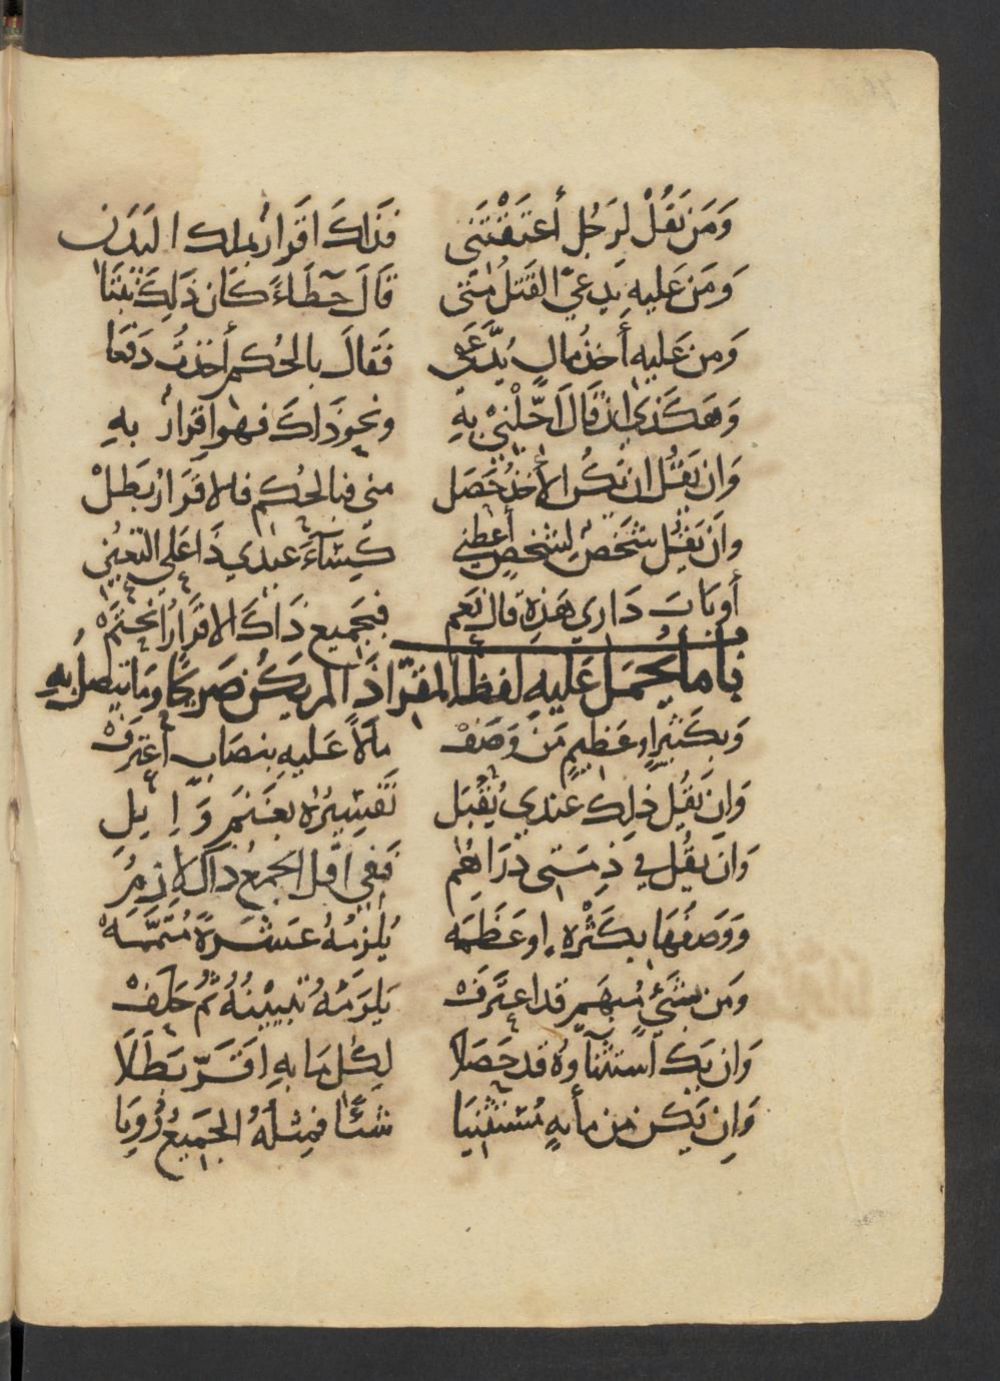 وَمَن يَقُلْ لِرَجُلٍ أعتَقْتَنى فَذَاكَ اقَرارٌ بملك البَدَن
وَمَن عَليهِ يدعيّ القَتلُ مَتى قَالَ خطَاءً كَان ذَلِكَ ثبتَا
وَمن عَليهِ أخذُ مالٍ يُدَّعَى فَقالَ بالحُكم أخذتُ دَفعَا
وَهَكَذي ان قَالَ احَّلْنيْ بِهِ ونحو ذَاكَ فهو اقرارٌ بِهِ
وَان يَقُل ان تَكُن الأخذُ حَصَل منى فبالحُكم فالاقرَارُ بَطَلْ
وَانْ يَقُل شَخصٌ لِشخصٍ أعطِنى كِسَآءَ عَبدي ذَا عَلى التعيُنِ
أوبَابَ دَاري هَذِهِ قال نَعم فبجَميع ذَاكَ الاقَرارُ انْحَتَمْ
باب مايُحمَل عَليهِ لفظُ المقرّ اذَا لم يَكُن صَريحًا وَمَا يتصلُ بِهِ
وَبكَثيرٍ اوعَظيمٍ مَن وَصَفْ مالاً عَليهِ بنصابٍ اعتَرفْ
وَان يَقُل ذلِك عندي يُقبَل تَفسِيرُهُ بغَنَمٍ وَإِبِلِ
وَان يقُل في ذِمَتى دَرَاهُم فَفي اقَل الجمعِ ذَاكَ لازمُ
وَوَصفُهَا بكَثْرهٍ اوعَظَمَه يُلزمُهُ عَشَرةً مُتَمَّمَهْ
وَمَن بشَيءٍ مُبهَمٍ قد اعتَرَفْ يَلزَمُهُ تَبيينُهُ ثم حَلَفْ
وَان يَك استثنآؤهُ قد حَصَلا لِكُل مَا بهِ اقَرّ بَطَلاَ
وَإن يَكن من مأيهٍ مُستثنِيَا شَئًا فمِثلهُ الجَميعُ رُوِيَا